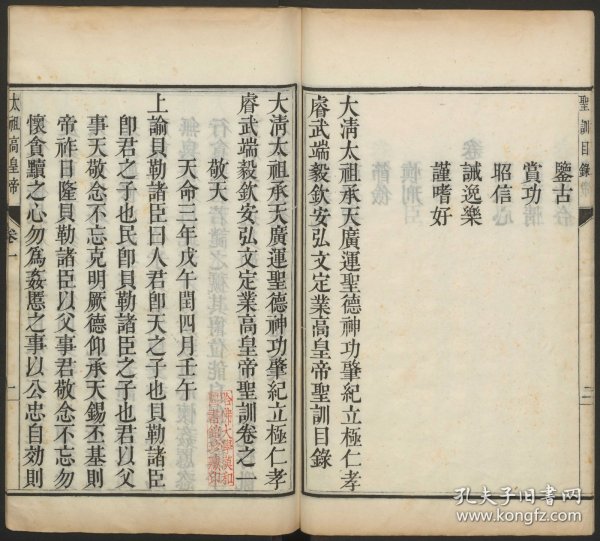 聖訓目錄
二
鑒古
賞功
昭信
誡逸樂
謹嗜好
大淸太祖承天廣運聖德神功肇紀立極仁孝
睿武端毅欽安弘文定業高皇帝聖訓目錄
大淸太祖承天廣運聖德神功肇紀立極仁孝
睿武端毅欽安弘文定業高皇帝聖訓卷之一
敬天
天命三年戊午閏四月壬午
上諭貝勒諸臣曰人君卽天之子也貝勒諸臣
卽君之子也民卽貝勒諸臣之子也君以父
事天敬念不忘克明厥德仰承天錫丕基則
帝祚日隆貝勒諸臣以父事君敬念不忘勿
懷貪黷之心勿爲姦慝之事以公忠自効則
太祖高皇帝
卷一
一
孔夫子旧书网
www.kongfz.com